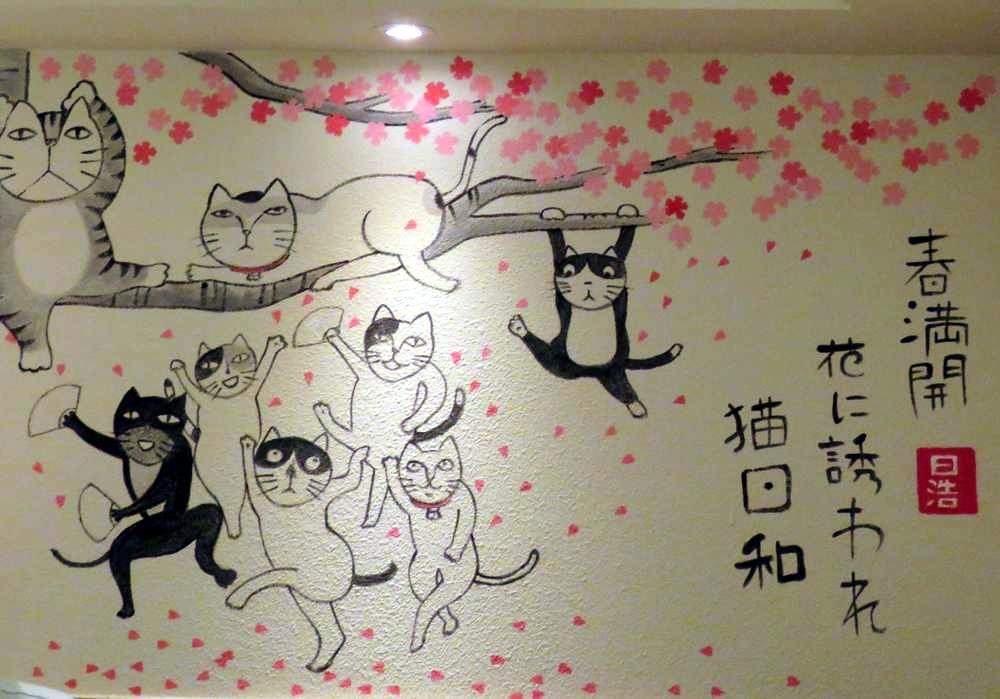 春満開
花に誘われ
猫日和
日浩